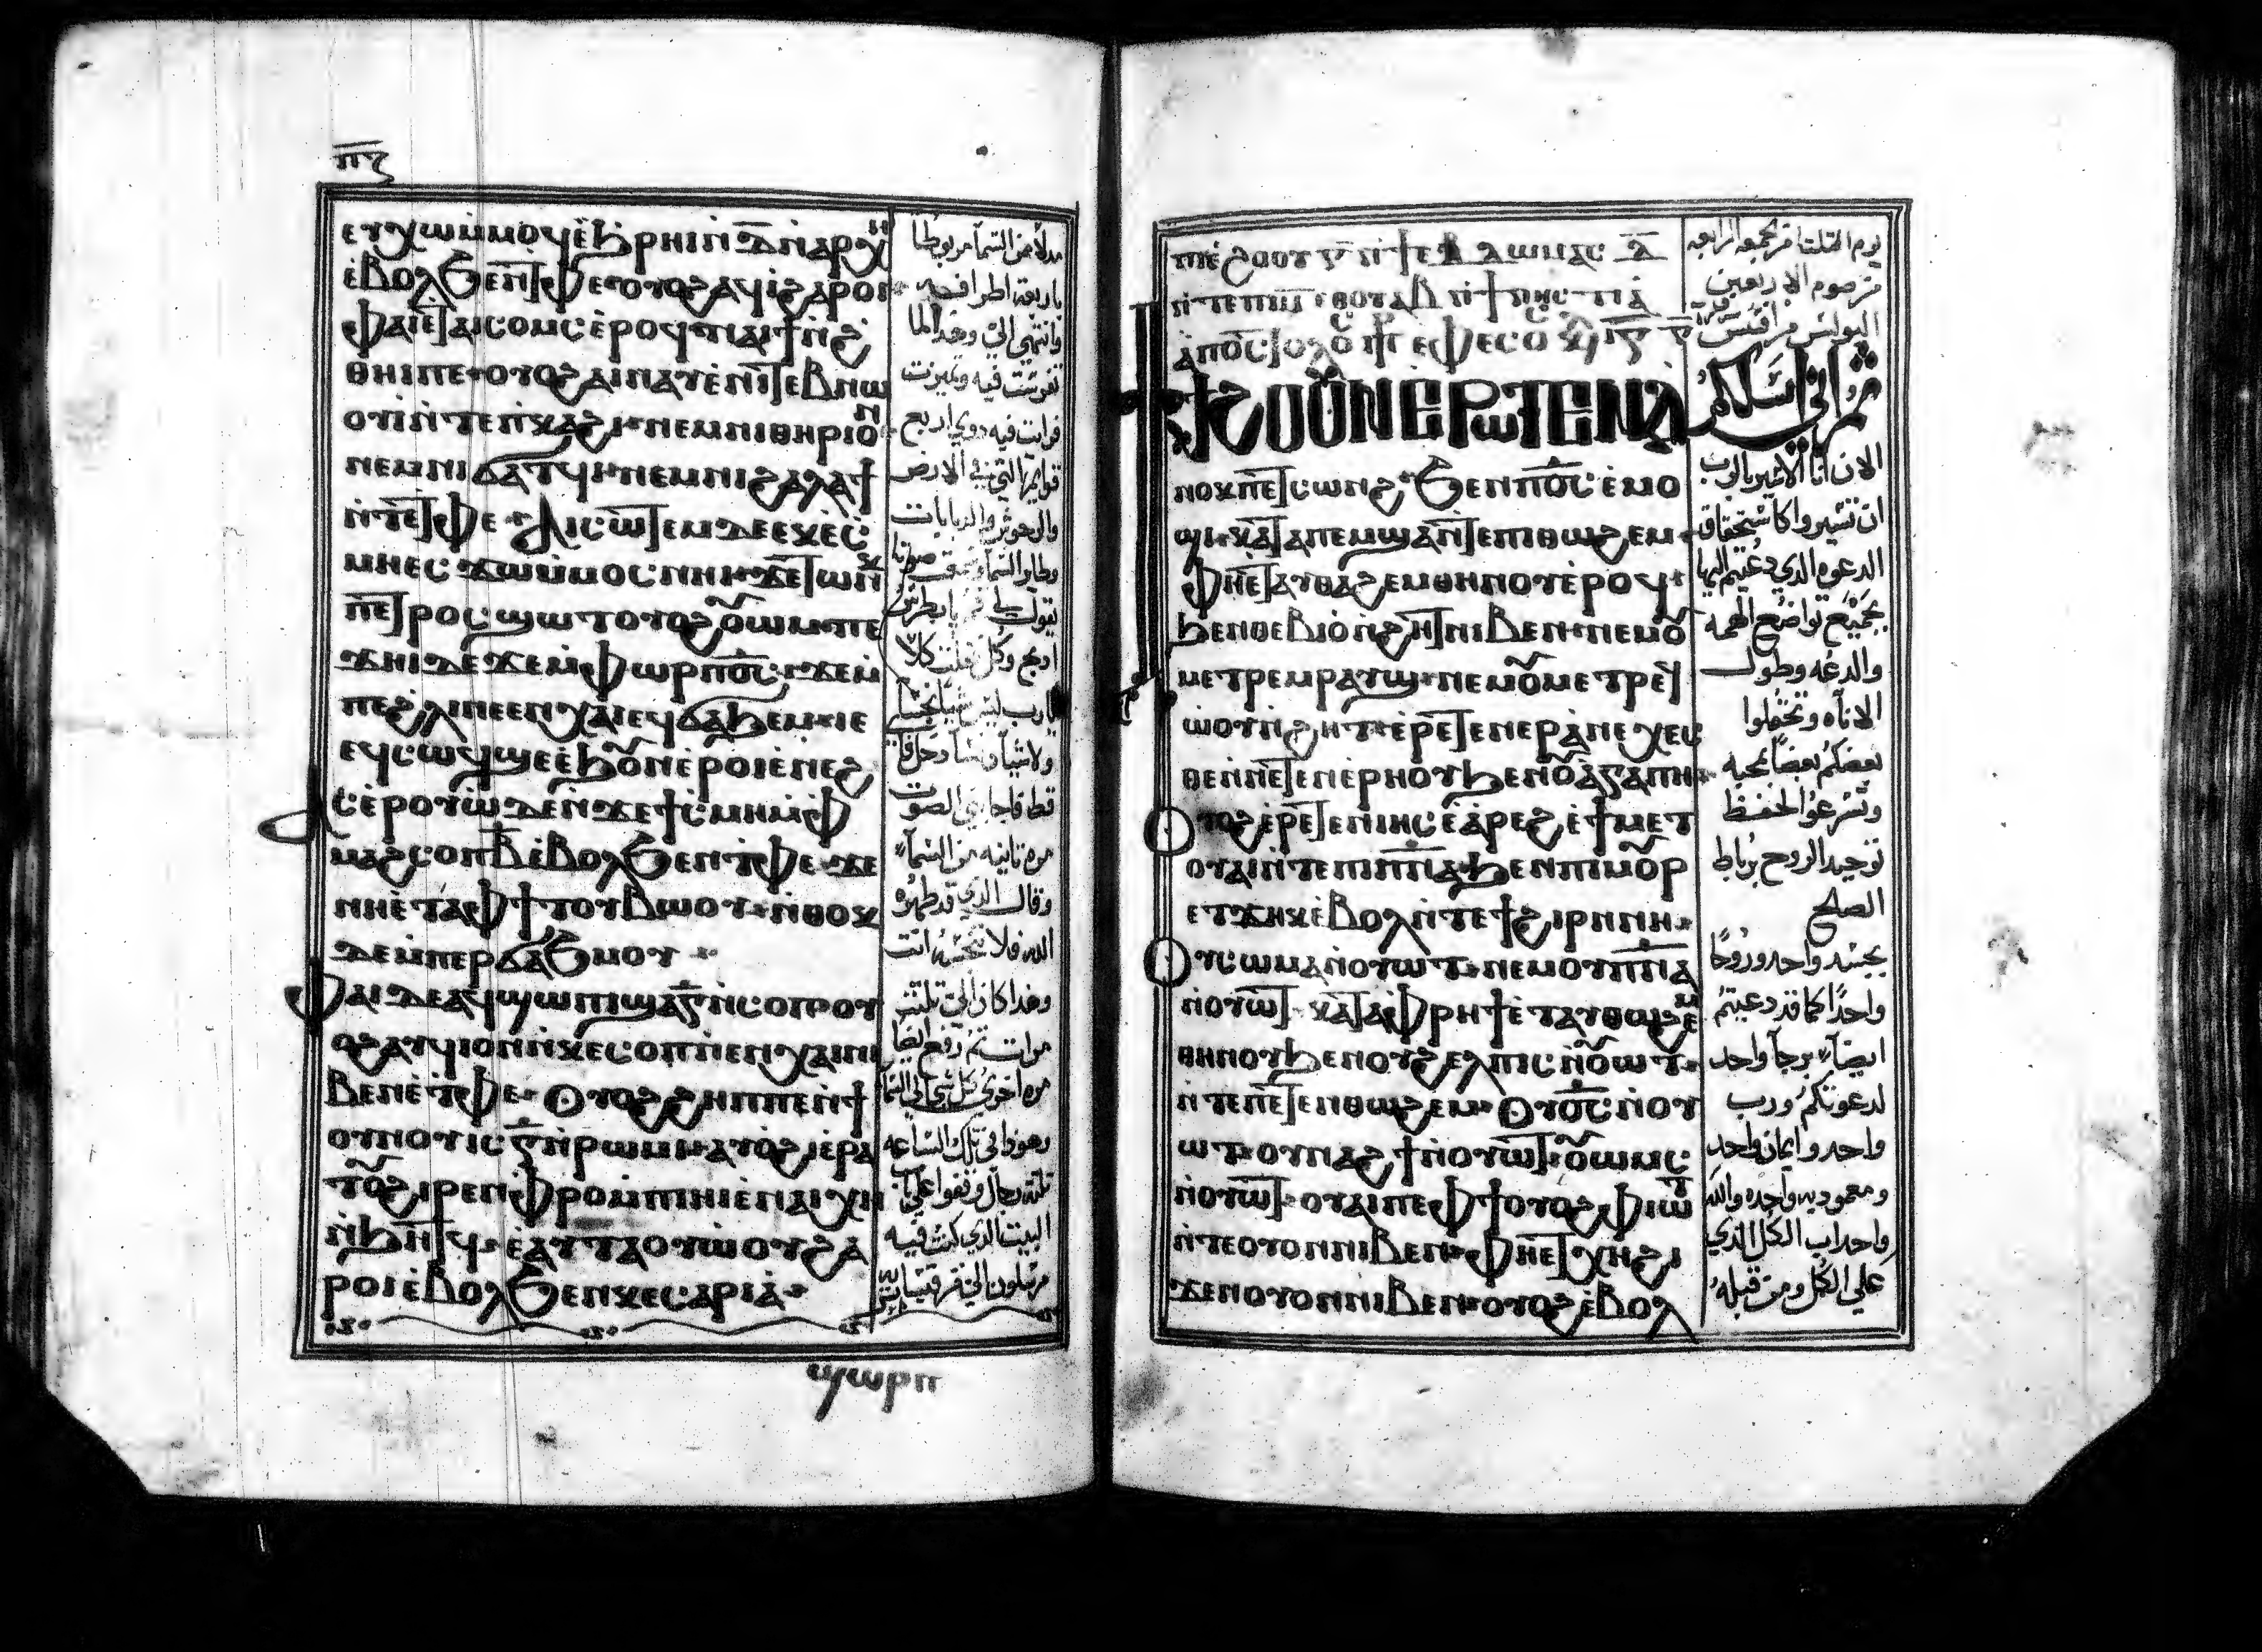 ⲡⲍ
ⲉⲩⲭⲱ ⲙ̀ⲙⲟϥ ⲉ̀ϧⲣⲏⲓ ⲛ̄ ⲇ̄ ⲛ̀ⲁⲣⲭⲏ
ⲉ̀ⲃⲟⲗ ϧⲉⲛ ⲧ̀ⲫⲉ ⲟⲩⲟϩ ⲁϥⲓ̀ ϩⲁⲣⲟⲓ
ⲫⲁⲓ ⲉ̀ⲧⲁⲓⲥⲟⲙⲥ ⲉ̀ⲣⲟϥ ⲛⲁⲓϯⲛ̀ϩ
ⲑⲏⲓ ⲡⲉ ⲟⲩⲟϩ ⲁⲓⲛⲁⲩ ⲉ̀ⲛⲓⲧⲉⲃⲛⲱ
ⲟⲩⲓ̀ ⲛ̀ⲧⲉ ⲡ̀ⲕⲁϩⲓ ⲛⲉⲙ ⲛⲓⲑⲏⲣⲓⲟⲛ
ⲛⲉⲙ ⲛⲓϭⲁⲧϥⲓ ⲛⲉⲙ ⲛⲓϩⲁⲗⲁϯ
ⲛ̀ⲧⲉ ⲧ̀ⲫⲉ ⲁⲓⲥⲱⲧⲉⲙ ⲇⲉ ⲉⲕⲉⲥ
ⲙⲏ ⲉⲥϫⲱ ⲙ̀ⲙⲟⲥ ⲛⲏⲓ ϫⲉ ⲧⲱⲛⲕ
ⲡⲉⲧⲣⲟⲥ ϣⲱⲧ ⲟⲩⲟϩ ⲟⲩⲱⲙ ⲡⲉ
ϫⲏⲓ ⲇⲉ ϫⲉ ⲙ̀ⲫⲱⲣ ⲡ̄ⲟ̄ⲥ̄ ϫⲉ ⲙ̀
ⲡⲉ ϩⲗⲓ ⲛⲉⲛⲭⲁⲓ ⲉϥϭⲁϧⲉⲙ ⲓⲉ
ⲉϥⲥⲱϥ ϣⲉ ⲉ̀ϧⲟⲩⲛ ⲉ̀ⲣⲱⲓ ⲉ̀ⲛⲉϩ
ⲥⲉ̀ⲣⲟⲩⲱ̀ ⲇⲉ ⲛ̀ϫⲉ ϯⲥⲙⲏ ⲙ̀ⲫ
ⲙⲁϩ ⲥⲟⲡ ⲃ̄ ⲉ̀ⲃⲟⲗ ϧⲉⲛ ⲧ̀ⲫⲉ ϫⲉ
ⲛⲏ ⲉ̀ⲧⲁ ⲫϯ ⲧⲟⲩⲃⲱⲟⲩ ⲛ̀ⲑⲟⲕ
ⲇⲉ ⲙ̀ⲡⲉⲣϭⲁϧⲙⲟⲩ
ⲫⲁⲓ ⲇⲉ ⲁϥϣⲱⲡⲓ ϣⲁ ⲅ̄ ⲛ̀ⲥⲟⲡ ⲟⲩ
ⲟϩ ⲁⲩϥⲓ ⲟⲛ ⲛ̀ⲕⲉⲥⲟⲡ ⲛ̀ⲉⲛⲭⲁⲓ ⲛⲓ
ⲃⲉⲛ ⲉ̀ⲧ̀ⲫⲉ ⲟⲩⲟϩ ϩⲏⲡⲡⲉ ⲛ̀ϯ
ⲟⲩⲛⲟⲩ ⲓⲥ ⲅ̄ ⲛ̀ⲣⲱⲙⲓ ⲁⲩⲟϩⲓ ⲉ̀ⲣⲁ
ⲧⲟⲩ ϩⲓⲣⲉⲛ ⲫ̀ⲣⲟ ⲙ̀ⲡⲓⲏⲓ ⲉ̀ⲛⲁⲓⲭⲏ
ⲛ̀ϧⲏⲧϥ ⲉ̀ⲁⲩⲧⲁⲟⲩⲱ̀ⲟⲩ ϩⲁ
ⲣⲟⲓ ⲉ̀ⲃⲟⲗ ϧⲉⲛ ⲕⲉⲥⲁⲣⲓⲁ̀
ϣⲱⲣⲡ
مدلاً من السمآ مربوطا
باربعة اطرافه
وانتهى اليّ وهذا لما
تفرست فيه وميزت
فرايت فيه ذوي اربع
قوايم التي في الارض
والوحوش والدبابات
وطاير السمآ وسمعت صوتا
يقول لي قم يا بطرس
اذبح وكل فقلت كلا
يارب ليس شيئا نجسا
قط فاجابني الصوت
مره ثانيه من السمآ
وقال الذي قد طهره
الله فلا تنجسه انت
وهذا كان الى ثلثت
مرات ثم رفع ايضا
مره اخرى كل شي الى السما
وهوذا في تلك الساعه
ثلثة رجال وقفوا على باب
البيت الذي كنت فيه
مرسلون الي من قيسارية
ⲡⲓⲉ̀ϩⲟⲟⲩ ⲅ̄ ⲛ̀ⲧⲉ ϯⲉⲃⲇⲱⲙⲁⲥ ⲇ̄
ⲛ̀ⲧⲉ ⲡⲓⲙ̄ ⲉⲑⲟⲩⲁⲃ ⲛ̀ϯⲛⲏⲥⲧⲓⲁ̀
ϯϩⲟ ⲟⲩⲛ ⲉⲣⲱⲧⲉⲛ ⲁ̀
ⲛⲟⲕ ⲡⲉⲧⲥⲱⲛϩ ϧⲉⲛ ⲡ̄ⲟ̄ⲥ̄ ⲉ̀ⲙⲟ
ϣⲓ ⲕⲁⲧⲁ ⲡⲉⲙⲡ̀ϣⲁ ⲛ̀ⲧⲉ ⲡⲓⲑⲱϩⲉⲙ
ⲫⲏ ⲉ̀ⲧⲁⲩⲑⲁϩⲉⲙ ⲑⲏⲛⲟⲩ ⲉ̀ⲣⲟϥ
ϧⲉⲛ ⲑⲉⲃⲓⲟ̀ ⲛ̀ϩⲏⲧ ⲛⲓⲃⲉⲛ ⲛⲉⲙ ⲟⲩ
ⲙⲉⲧⲣⲉⲙⲣⲁⲩϣ ⲛⲉⲙ ⲟⲩⲙⲉⲧⲣⲉϥ
ⲱ̀ⲟⲩⲛ̀ϩⲏⲧ ⲉ̀ⲣⲉⲧⲉⲛⲉⲣⲁ̀ⲛⲉⲭⲉⲥ
ⲑⲉ ⲛ̀ⲛⲉⲧⲉⲛⲉⲣⲏⲟⲩ ϧⲉⲛ ⲟⲩⲁ̀ⲅⲁⲡⲏ
ⲟⲩⲟϩ ⲉ̀ⲣⲉⲧⲉⲛⲓⲏⲥ ⲉ̀ⲁ̀ⲣⲉϩ ⲉ̀ϯⲙⲉⲧ
ⲟⲩⲁⲓ ⲛ̀ⲧⲉ ⲡⲓⲡ̄ⲛ̄ⲁ̄ ϧⲉⲛ ⲡⲓⲙⲟⲩⲣ
ⲉⲧϫⲏⲕ ⲉ̀ⲃⲟⲗ ⲛ̀ⲧⲉ ϯϩⲓⲣⲏⲛⲏ
ⲟⲩⲥⲱⲙⲁ ⲛ̀ⲟⲩⲱⲧ ⲛⲉⲙ ⲟⲩⲡ̄ⲛ̄ⲁ̄
ⲛ̀ⲟⲩⲱⲧ ⲕⲁⲧⲁ ⲫ̀ⲣⲏϯ ⲉ̀ⲧⲁⲩⲑⲱϩⲉⲙ
ⲑⲏⲛⲟⲩ ϧⲉⲛ ⲟⲩϩⲉⲗⲡⲓⲥ ⲛ̀ⲟⲩⲱⲧ
ⲛ̀ⲧⲉ ⲡⲉⲧⲉⲛⲑⲱϩⲉⲙ ⲟⲩⲟ̄ⲥ̄ ⲛ̀ⲟⲩ
ⲱⲧ ⲟⲩⲛⲁϩϯ ⲛ̀ⲟⲩⲱⲧ ⲟⲩⲱⲙⲥ
ⲛ̀ⲟⲩⲱⲧ ⲟⲩⲁⲓ ⲡⲉ ⲫϯ ⲟⲩⲟϩ ⲫ̀ⲓⲱⲧ
ⲛ̀ⲧⲉ ⲟⲩⲟⲛ ⲛⲓⲃⲉⲛ ⲫⲏ ⲉⲧⲭⲏ ϩⲓ
ϫⲉⲛ ⲟⲩⲟⲛ ⲛⲓⲃⲉⲛ ⲟⲩⲟϩ ⲉ̀ⲃⲟⲗ
يوم الثلثا من الجمعه الرابعه
من صوم الاربعين
الان انا الاسير بالرب
ان تسيروا كاستحقاق
الدعوه الذي دعيتم اليها
بجميع تواضع الهمه
والدعه وطول
الاناه وتحتملوا
بعضكم بعضاً بمحبه
وتسرعوا لحفظ
توحيد الروح برباط
الصلح
بجسد واحد وروحاً
واحداً كما قد دعيتم
ايضاً برجآ واحد
لدعوتكم ورب
واحد وايمان واحد
ومعموديه واحده والله
واحد اب الكل الذي
على الكل ومن قبله